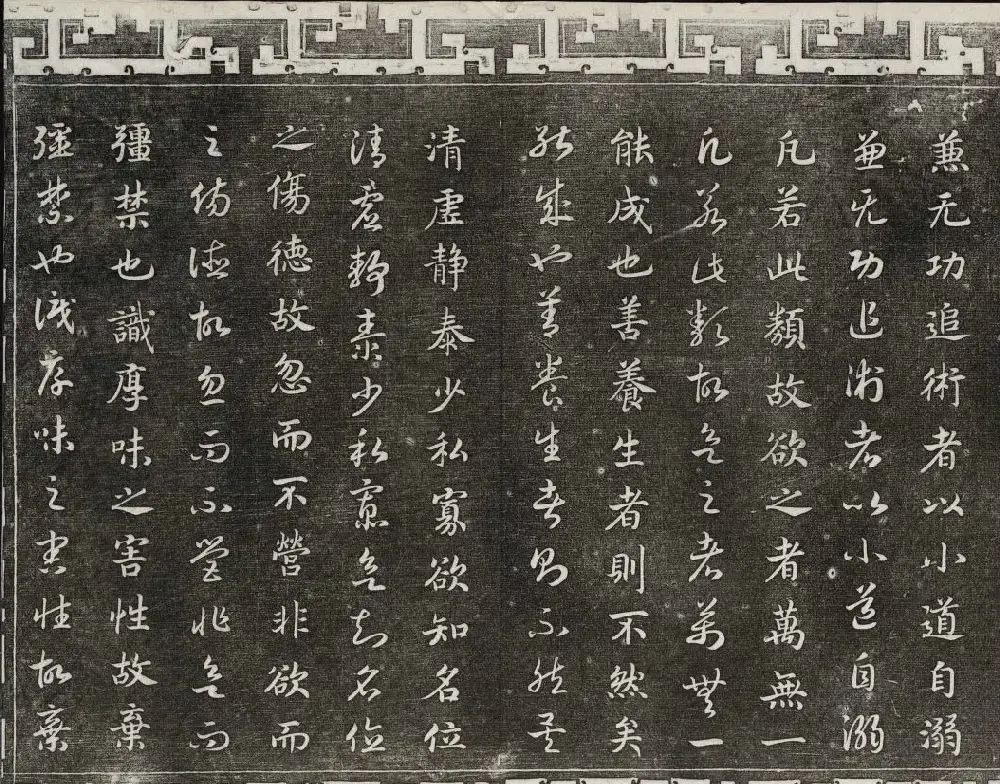 兼无功追術者以小道自溺
兼无功追術者以小道自溺
凡若此類故欲之者萬無一
凡若此類故欲之者萬無一
能成也善養生者則不然矣
能成也善養生者則不然矣
清虛静泰少私寡欲知名位
清虛静泰少私寡欲知名位
之傷德故忽而不營非欲而
之傷德故忽而不營非欲而
彊禁也識厚味之害性故棄
彊禁也識厚味之害性故棄